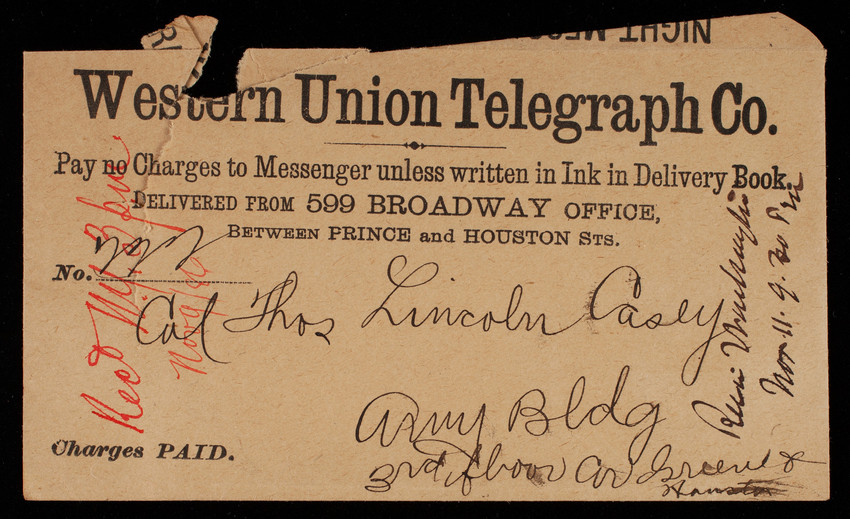 NIGHT MES
Western Union Telegraph Co.
Pay no Charges to Messenger unless written in Ink in Delivery Book.
DELIVERED FROM 599 BROADWAY OFFICE,
BETWEEN PRINCE and HOUSTON STS.
No.
Col Thos Lincoln Casey
Army Bldg
3rd floor Cor Greene &
Houston
Charges PAID.
Recd
Nov 11. 9.20 P